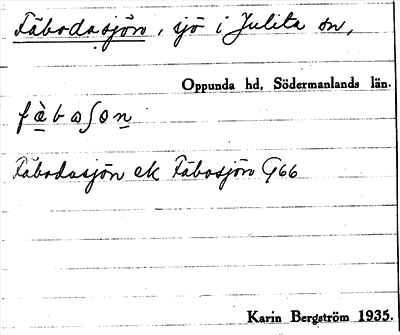 Fäbodasjön, sjö i Julita sn,
Oppunda hd, Södermanlands län.
fä̀baʃon
Fäbodasjön ek Fäbosjön G66
Karin Bergström 1935.